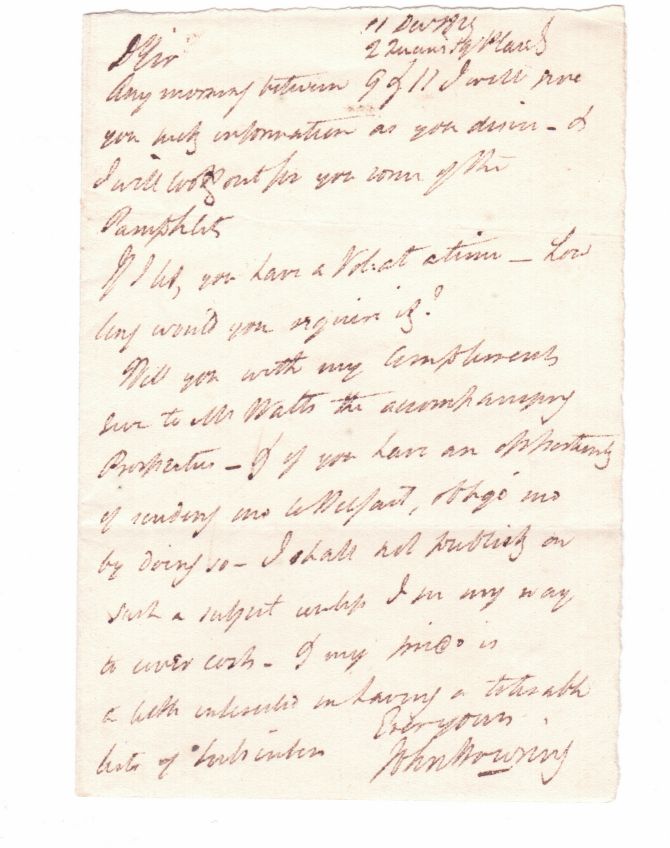 11 Dec
2 Queen Sq Place
D Sir
Any morning between 9 & 11 I will give
you such information as you desire - &
I will look out for you some of the
Pamphlets
If I let you have a Vol: at a time - how
long would you require it?
Will you with my Compliments
give to Mr Watts the accompanying
Prospectus - & if you have an opportunity
of sending one to Belfast, oblige me
by doing so - I shall not publish on
such a subject unless I see my way
to cover cost - & my pride is
a little interested in having a tolerable
list of Subscribers
Ever yours
John Bowring